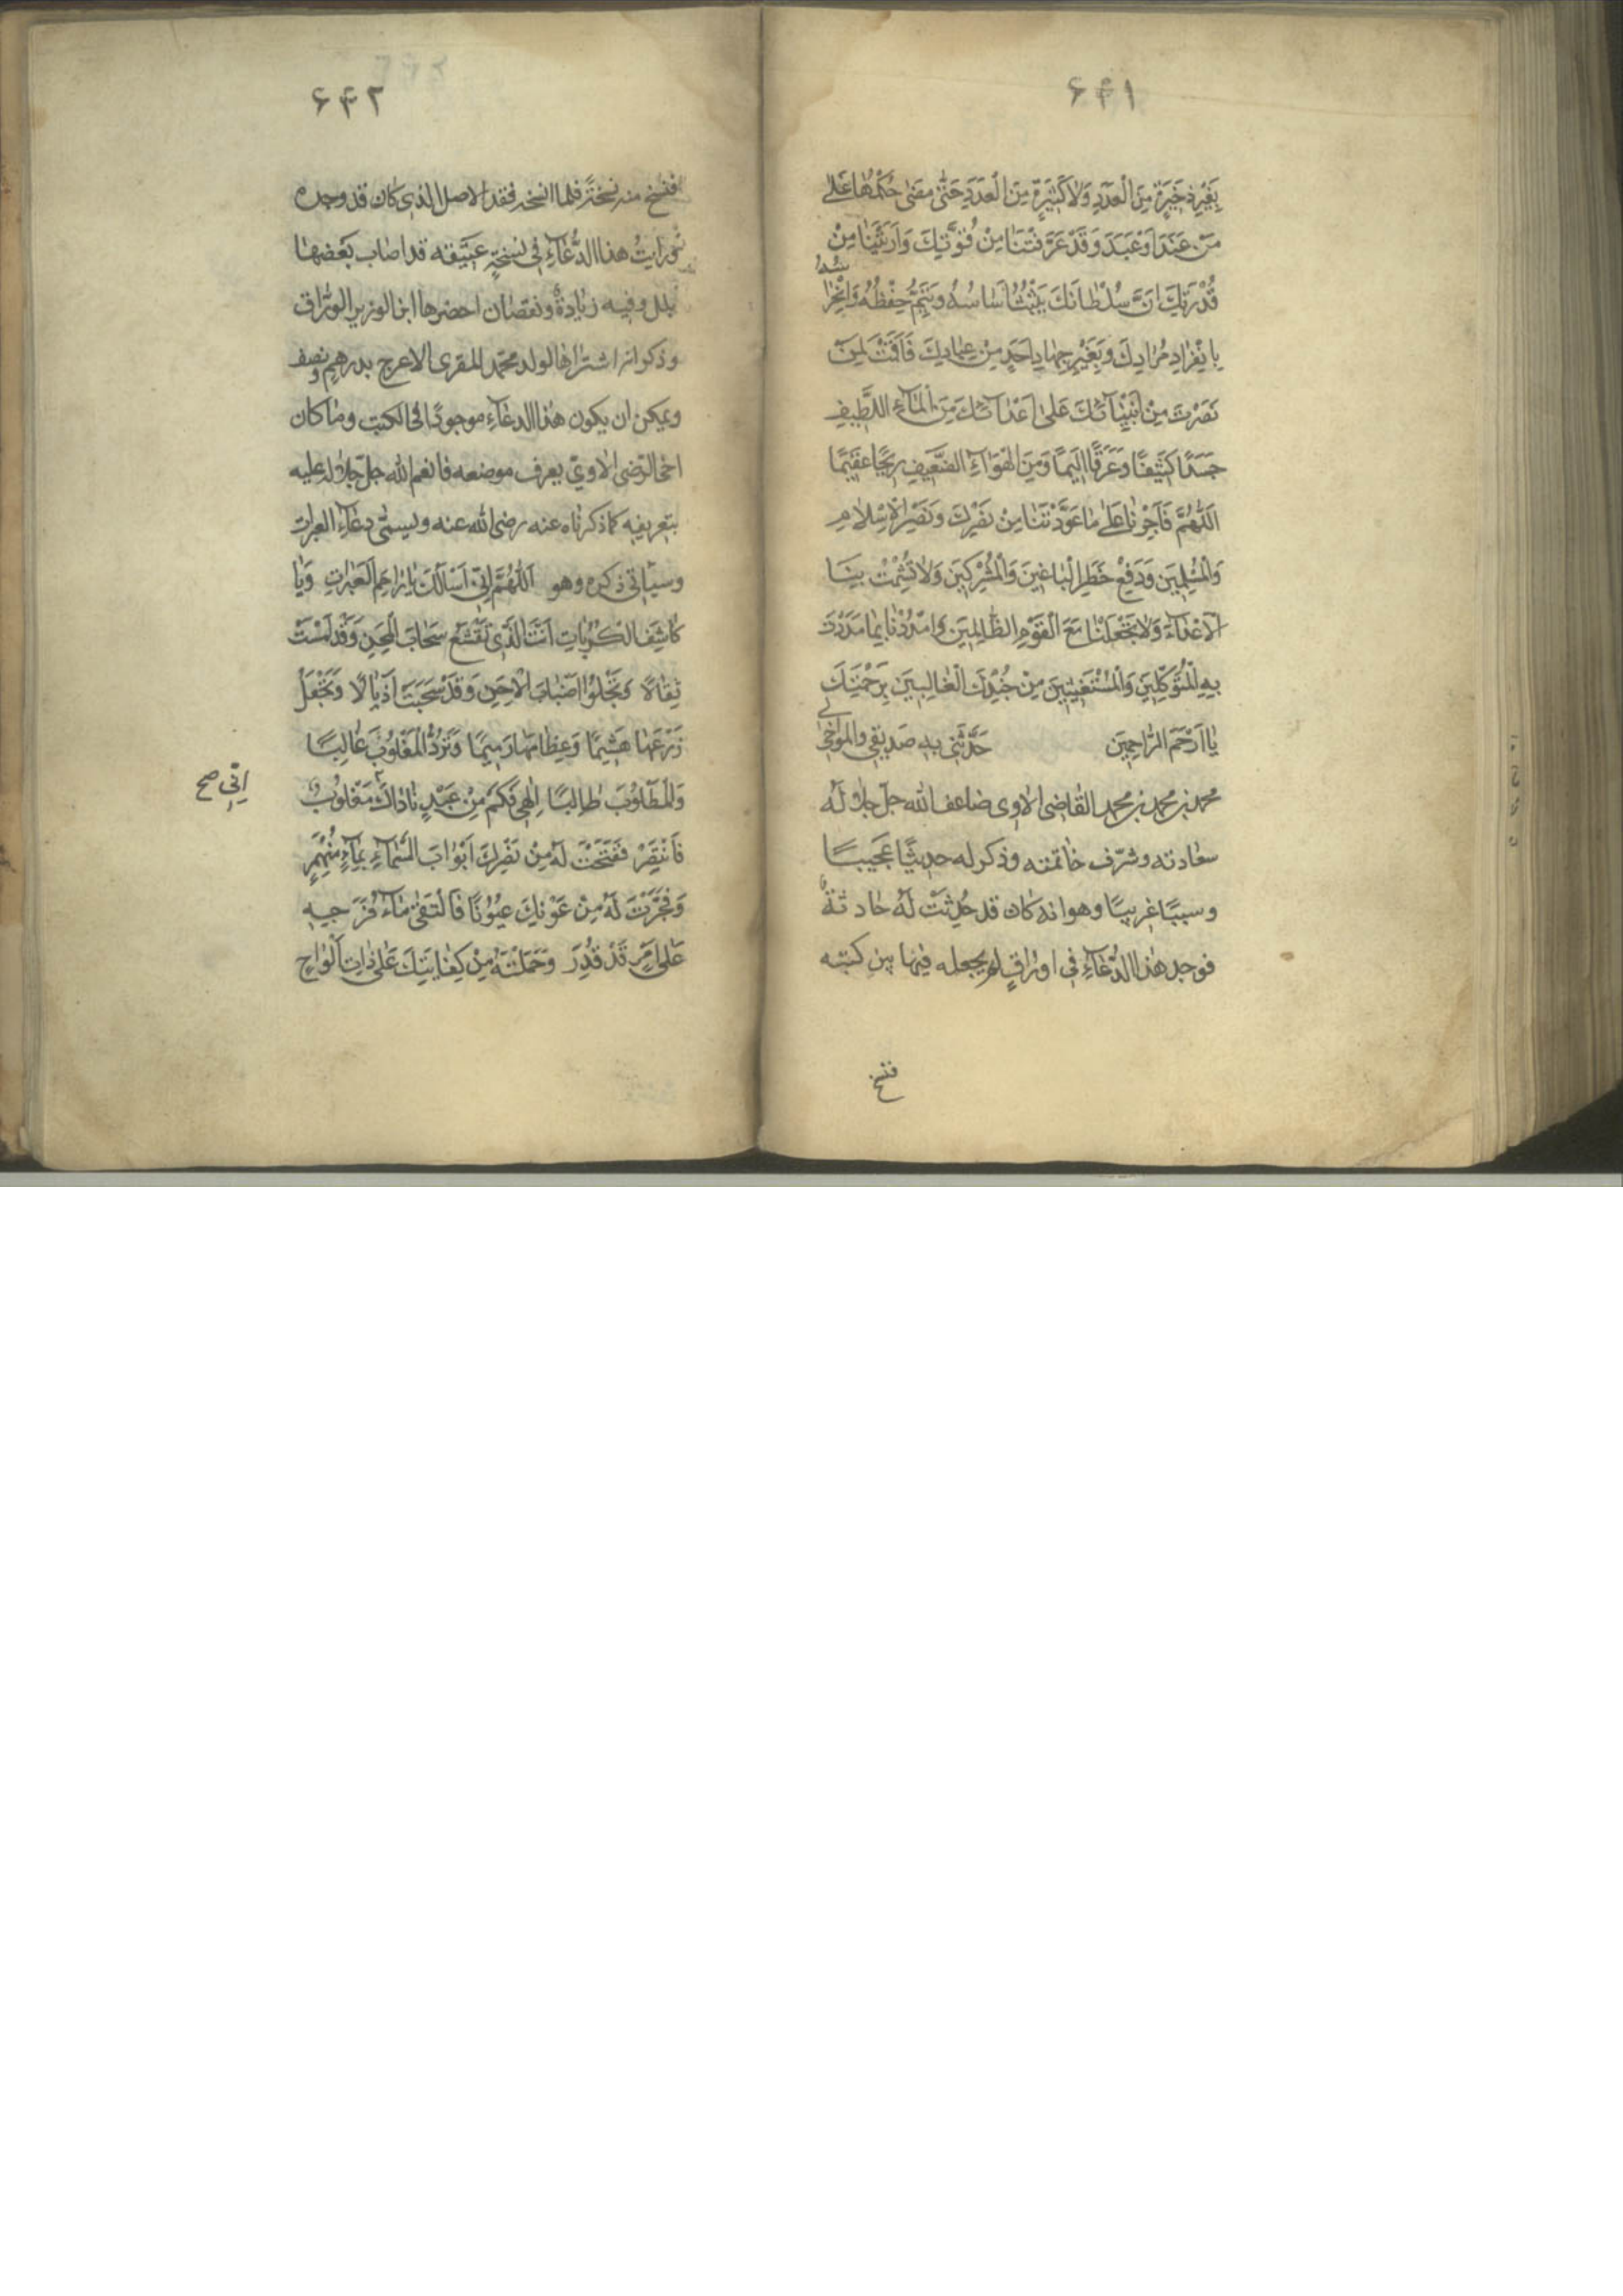 ۶۴۱
بِغَيْرِ ذَخِيرَةٍ مِنَ الْعُدَدِ وَلَا كَثِيرَةٍ مِنَ الْعَدَدِ حَتّٰى مَضٰى حُكْمُهَا عَلٰى
مَنْ عَنَدَ اَوْ عَبَدَ وَقَدْ عَرَّفْتَنَا مِنْ قُوَّتِكَ وَاَرَيْتَنَا مِنْ
قُدْرَتِكَ اَنَّ سُلْطَانَكَ يَثْبُتُ اَسَاسُهُ وَيَتِمُّ حِفْظُهُ
بِانْفِرَادِ مُرَادِكَ وَبِغَيْرِ جِهَادِ اَحَدٍ مِنْ عِبَادِكَ فَاَقَمْتَ لِمَنْ
نَصَرْتَ مِنْ اَنْبِيَآئِكَ عَلٰى اَعْدَآئِكَ مِنَ الْمَآءِ اللَّطِيفِ
جَسَدًا كَثِيفًا وَغَرَقًا اَلِيمًا وَمِنَ الْهَوَآءِ الضَّعِيفِ رِيحًا عَقِيمًا
اَللّٰهُمَّ فَاَجِرْنَا عَلٰى مَا عَوَّدْتَنَا مِنْ نَصْرِكَ وَنَصْرِ الْاِسْلَامِ
وَالْمُسْلِمِينَ وَدَفْعِ خَطَرِ الْبَاغِينَ وَالْمُشْرِكِينَ وَلَا تُشْمِتْ بِنَا
الْاَعْدَآءَ وَلَا تَجْعَلْنَا مَعَ الْقَوْمِ الظَّالِمِينَ وَامْدُدْنَا بِمَا مَدَدْتَ
بِهِ الْمُتَوَكِّلِينَ وَالْمُسْتَغِيثِينَ مِنْ جُنْدِكَ الْغَالِبِينَ بِرَحْمَتِكَ
يَا اَرْحَمَ الرَّاحِمِينَ حَدَّثَنِي بِهِ صَدِيقِي وَالمواخي لي
محمد بن محمد بن محمد القاضي الاوي ضاعف الله جل جلاله
سعادته وشرّف خاتمته وذكر له حديثًا عجيبًا
وسببًا غريبًا وهو انه كان قد حَدَثَتْ لَهُ حادثة
فوجد هذا الدُّعَآءَ في اوراقٍ لم يجعله فيها بين كتبه
فنسخ
۶۴۲
فنسخ منه نسخةً فلما انسخه فقد الاصل الذي كان قد وجده
ثم رايتُ هذا الدُّعَآءَ في نسخةٍ عتيقه قد اصاب بعضها
بلل وفيه زيادةٌ ونقصان احضرها ابن الوزير الورّاق
وذكر انه اشتراها لولد محمد المقرى الاعرج بدرهم ونصف
ويمكن ان يكون هذا الدعآء موجودًا في الكتب وما كان
اخي الرضي الاوي يعرف موضعه فانعم الله جل جلاله عليه
بتعريفه كما ذكرناه عنه رضي الله عنه ويسمى دعآء العبرات
وسيأتي ذكره وهو اَللّٰهُمَّ اِنِّي اَسْاَلُكَ يَا رَاحِمَ الْعَبَرَاتِ وَيَا
كَاشِفَ الْكُرُبَاتِ اَنْتَ الَّذِي تَقْشَعُ سَحَابَ الْمِحَنِ وَقَدْ اَمْسَتْ
ثِقَالًا وَتَجْلُوا ضَبَابَ الْاِحَنِ وَقَدْ سَحَبَتْ اَذْيَالًا وَتَجْعَلُ
زَرْعَهَا هَشِيمًا وَعِظَامَهَا رَمِيمًا وَتَرُدُّ الْمَغْلُوبَ غَالِبًا
وَالْمَطْلُوبَ طَالِبًا اِلٰهِي فَكَمْ مِنْ عَبْدٍ نَادَاكَ مَغْلُوبٌ
اِنِّي صح
فَانْتَصِرْ فَفَتَحْتَ لَهُ مِنْ نَصْرِكَ اَبْوَابَ السَّمَآءِ بِمَآءٍ مُنْهَمِرٍ
وَفَجَّرْتَ لَهُ مِنْ عَوْنِكَ عُيُونًا فَالْتَقٰى مَآءُ فَرَجِهِ
عَلٰى اَمْرٍ قَدْ قُدِرَ وَحَمَلْتَهُ مِنْ كِفَايَتِكَ عَلٰى ذَاتِ اَلْوَاحٍ